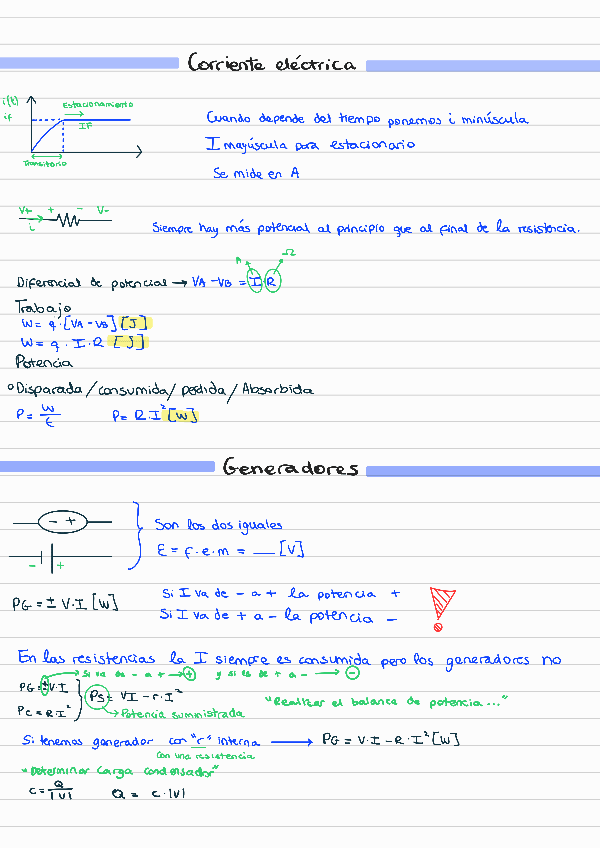 Corriente eléctrica
i(t)
if
Estacionamiento
IF
Transitorio
Cuando depende del tiempo ponemos i minúscula
I mayúscula para estacionario
Se mide en A
V+ + - V-
i
Siempre hay más potencial al principio que al final de la resistencia.
A Ω
Diferencial de potencial → VA - VB = I R
Trabajo
W = q · [VA - VB] [J]
W = q · I · R [J]
Potencia
° Disparada / consumida / pedida / Absorbida
P = W/t P = R·I² [W]
Generadores
- +
- +
Son los dos iguales
E = f.e.m = ___ [V]
PG = ± V·I [W]
Si I va de - a + la potencia +
Si I va de + a - la potencia -
En las resistencias la I siempre es consumida pero los generadores no
→ Si va de - a + → + y si es de + a - → -
PG = ±V·I
PC = R·I²
PS = VI - r·I²
→ Potencia suministrada
"Realizar el balance de potencia..."
Si tenemos generador con "r" interna → PG = V·I - R·I² [W]
con una resistencia
"Determinar carga condensador"
C = Q/|V| Q = C·|V|